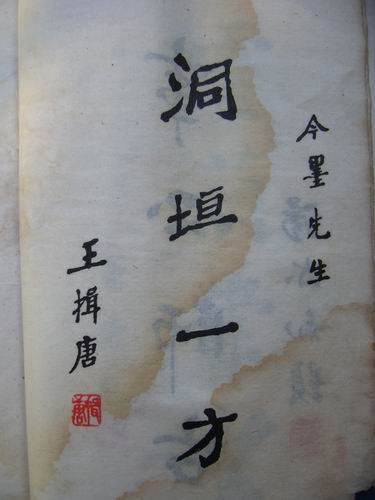 今墨先生
洞垣一方
王揖唐